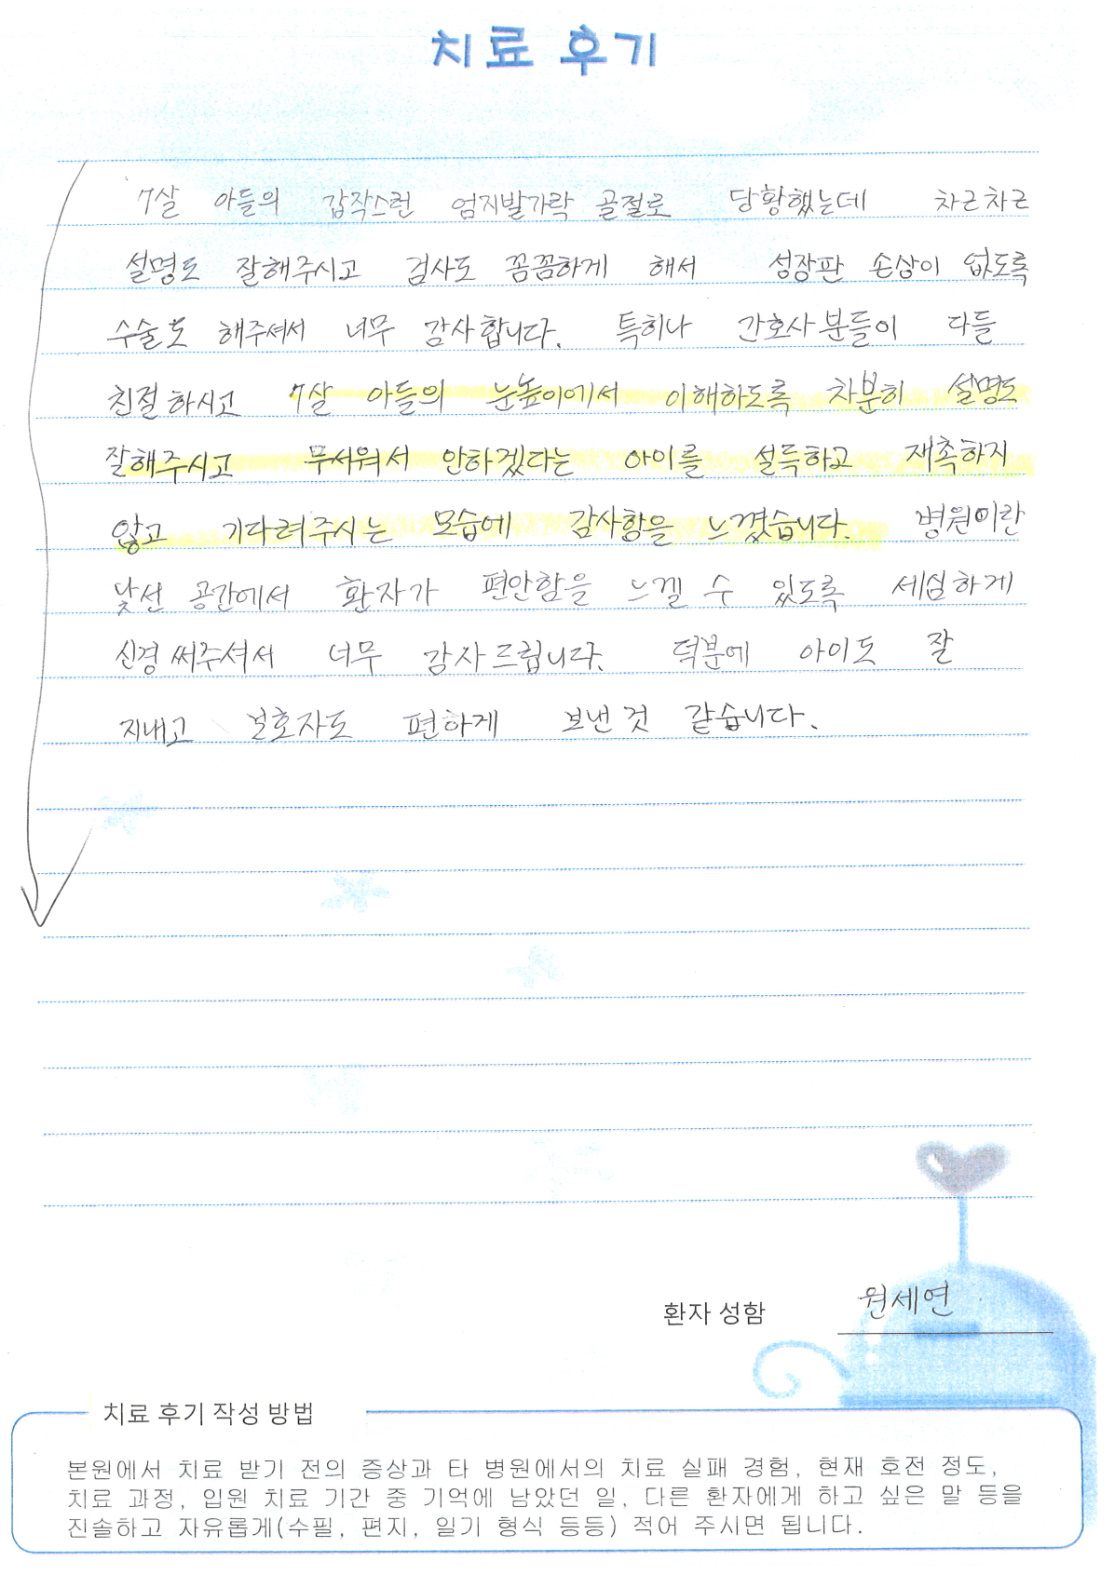 치료 후기
7살 아들의 갑작스런 엄지발가락 골절로 당황했는데 차근차근
설명도 잘해주시고 검사도 꼼꼼하게 해서 성장판 손상이 없도록
수술도 해주셔서 너무 감사합니다. 특히나 간호사분들이 다들
친절하시고 7살 아들의 눈높이에서 이해하도록 차분히 설명도
잘해주시고 무서워서 안하겠다는 아이를 설득하고 재촉하지
않고 기다려주시는 모습에 감사함을 느꼈습니다. 병원이란
낯선 공간에서 환자가 편안함을 느낄 수 있도록 세심하게
신경써주셔서 너무 감사드립니다. 덕분에 아이도 잘
지내고 보호자도 편하게 보낸 것 같습니다.
환자 성함 원세연
치료 후기 작성 방법
본원에서 치료 받기 전의 증상과 타 병원에서의 치료 실패 경험, 현재 호전 정도,
치료 과정, 입원 치료 기간 중 기억에 남았던 일, 다른 환자에게 하고 싶은 말 등을
진솔하고 자유롭게(수필, 편지, 일기 형식 등등) 적어 주시면 됩니다.